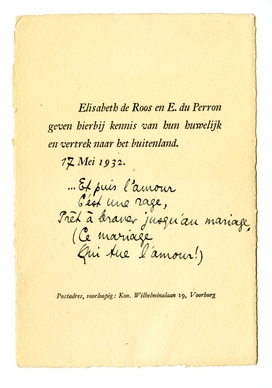 Elisabeth de Roos en E. du Perron
geven hierbij kennis van hun huwelijk
en vertrek naar het buitenland.
17 Mei 1932.
...Et puis l'amour
C'est une rage,
Prêt à braver jusqu'au mariage,
(Ce mariage
Qui tue l'amour!)
Postadres, voorloopig: Kon. Wilhelminalaan 19, Voorburg